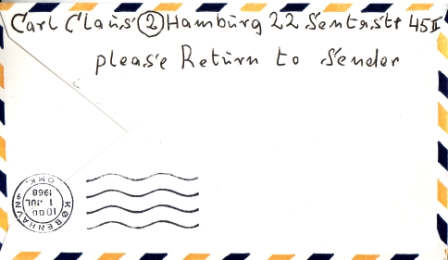 Carl Claus ② Hamburg 22 Sentastr 45 II
please Return to Sender
KØBENHAVN
OMK.
1000
1 JUL
1968